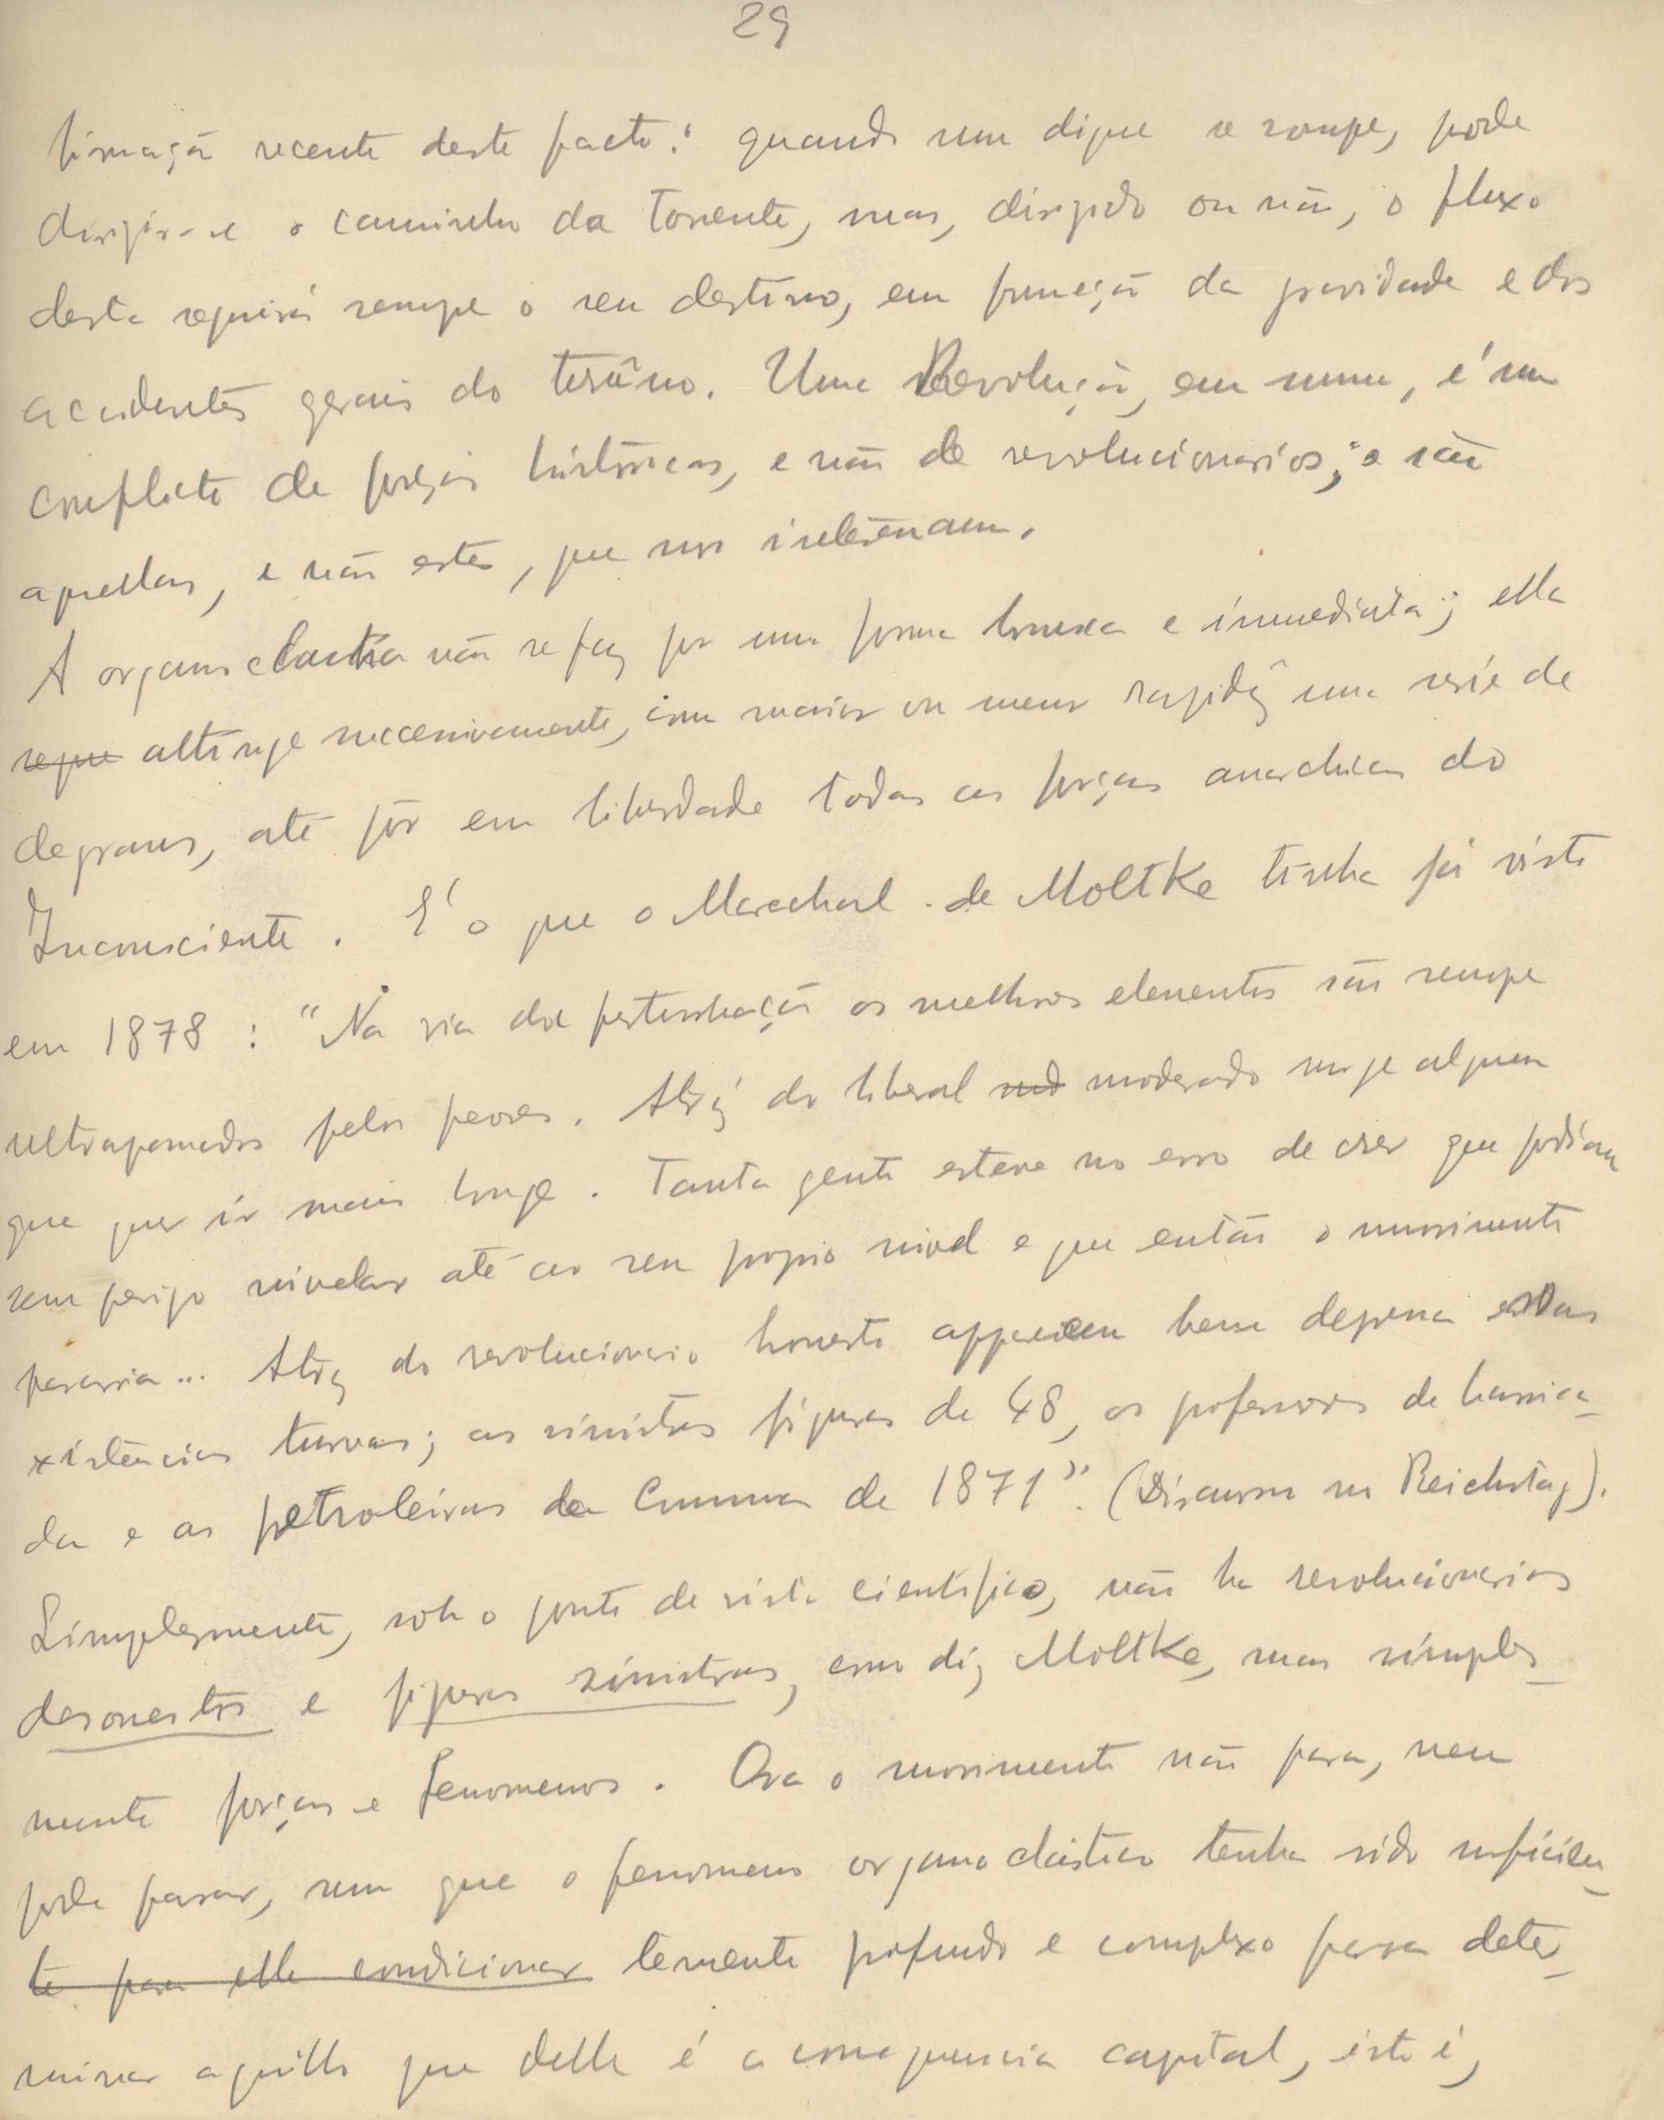 29
firmação recente deste facto: quando um dique se rompe, pode
dirigir-se o caminho da torrente, mas, dirigido ou não, o fluxo
desta seguirá sempre o seu destino, em funcção da gravidade e dos
accidentes gerais do terrêno. Uma Revolução, em summa, é um
conflicto de forças históricas, e não de revolucionarios; e são
aquellas, e não estes, que nos interessam.
A organoclastia não se faz por uma forma brusca e immediata; ella
segue attinge successivamente, com maior ou menor rapidêz uma serie de
degraus, até pôr em liberdade todas as forças anarchicas do
Inconsciente. E' o que o Marechal de Moltke tinha já visto
em 1878 : "Na via da perturbação os melhores elementos são sempre
ultrapassados pelos peores. Atráz do liberal mod moderado surge alguem
que quer ir mais longe. Tanta gente esteve no erro de crer que podiam
sem perigo nivelar até ao seu proprio nivel e que então o movimento
pararia... Atraz do revolucionario honesto apparecem bem depressa essas
existências turvas; as sinistras figuras de 48, os professores de barrica-
da e as petroleiras da Communa de 1871". (Discurso no Reichstag).
Simplesmente, sob o ponto de vista cientifico, não ha revolucionarios
desonestos e figuras sinistras, como diz Moltke, mas simples-
mente forças e fenomenos. Ora o movimento não para, nem
pode parar, sem que o fenomeno organoclástico tenha sido suficien-
te para elle condicionar temente profundo e complexo para deter-
minar aquillo que delle é a consequencia capital, isto é,